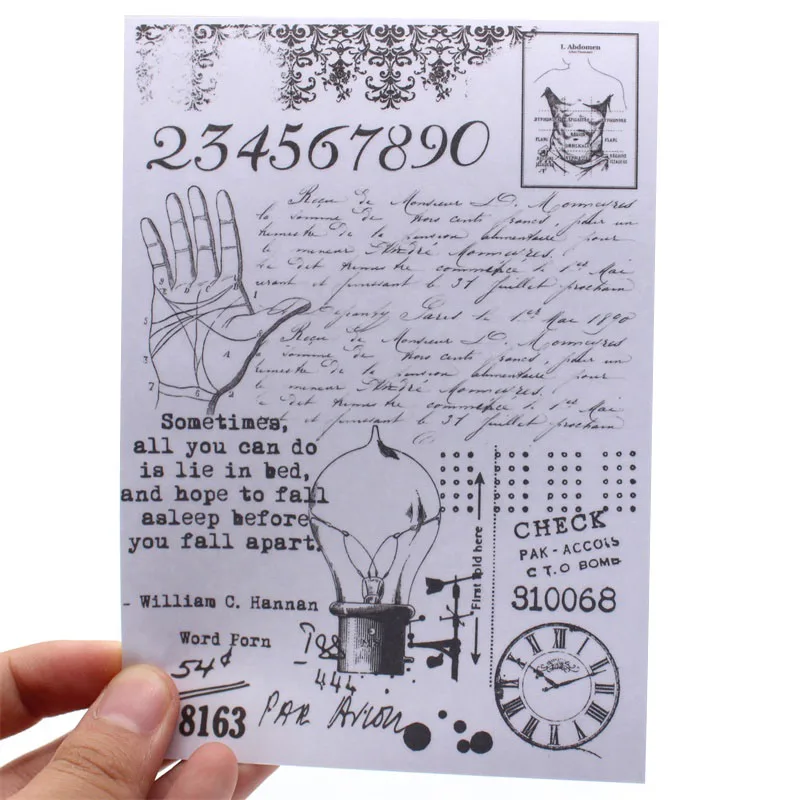 1. Abdomen
234567890
Reçu de Monsieur D. Monmeyres
la somme de trois cents francs, pour un
trimestre de la pension alimentaire pour
le mineur André Monmeyres.
Le dit trimestre commence le 1er Mai
et finissant le 31 Juillet prochain
Paris le 1er Mai 1890
Reçu de Monsieur D. Monmeyres
la somme de trois cents francs, pour un
trimestre de la pension alimentaire pour
le mineur André Monmeyres.
Le dit trimestre commence le 1er Mai
et finissant le 31 Juillet prochain
Sometimes,
all you can do
is lie in bed,
and hope to fall
asleep before
you fall apart.
- William C. Hannan
Word Forn
54¢
444
8163
PAR Avion
First fold here
CHECK
PAK-ACCOIS
C T.O BOMB
310068